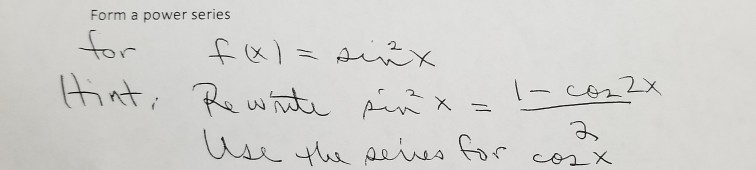 Form a power series
for f(x) = sin²x
Hint: Rewrite sin²x = (1 - cos2x)/2
Use the series for cos x